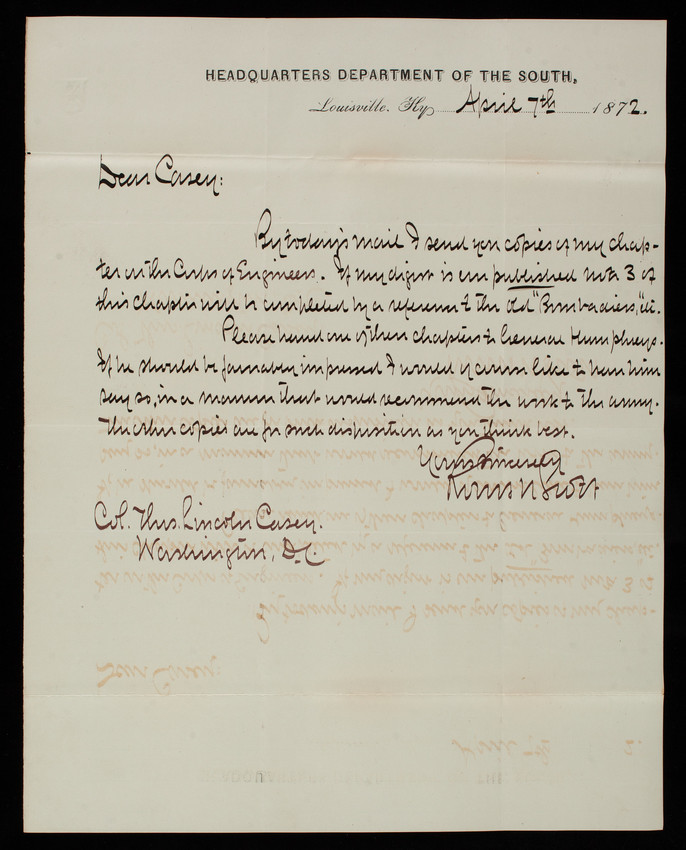 HEADQUARTERS DEPARTMENT OF THE SOUTH,
Louisville, Ky, April 7th 1872.
Dear Casey:
By today's mail I send you copies of my chap-
ter on the Corps of Engineers. If my digest is ever published note 3 of
this chapter will be completed by a reference to the old "Bombadiers," etc.
Please hand one of these chapters to General Humphreys.
If he should be favorably impressed I would of course like to have him
say so, in a manner that would recommend the work to the army.
The other copies are for such disposition as you think best.
Yours Sincerely
Robert N Scott
Col. Thos. Lincoln Casey.
Washington, D.C.